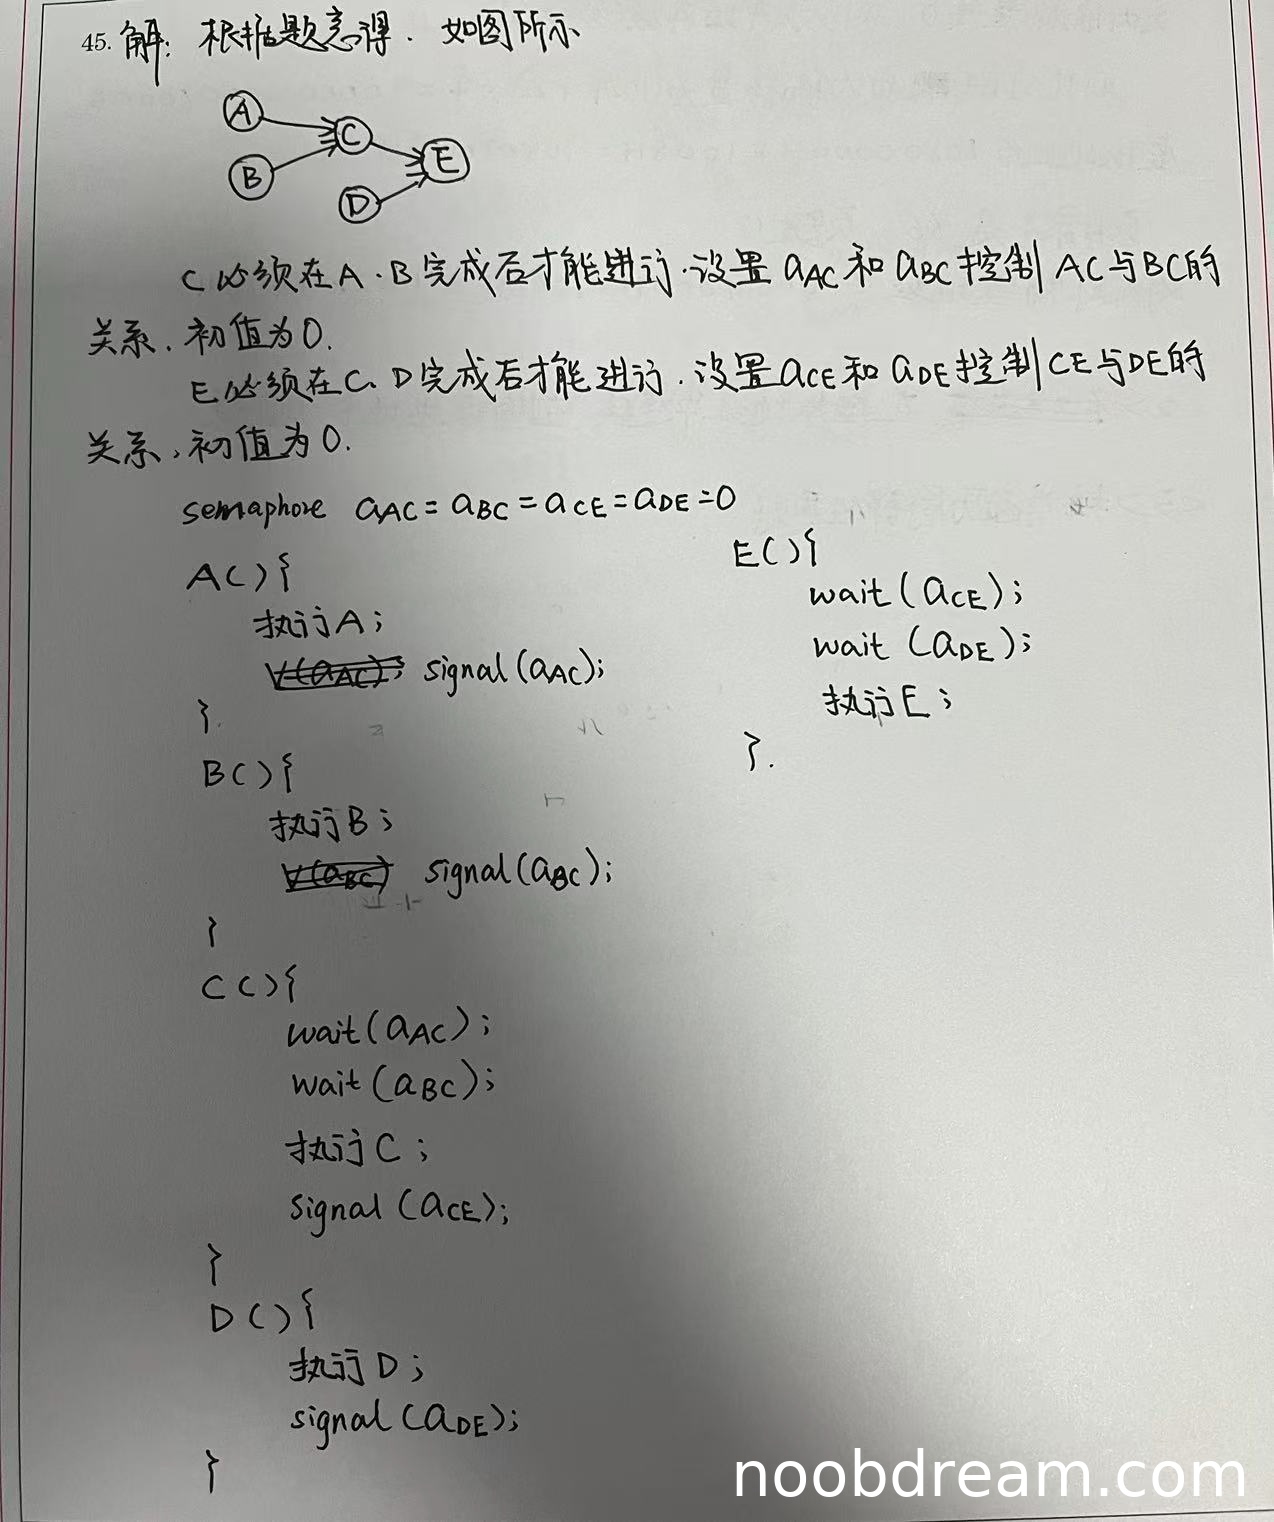 45. 解: 根据题意得. 如图所示
A
C
B
E
D
C必须在A.B完成后才能进行.设置aAC和aBC控制AC与BC的
关系.初值为0.
E必须在C、D完成后才能进行.设置aCE和aDE控制CE与DE的
关系,初值为0.
semaphore aAC=aBC=aCE=aDE=0
A(){
执行A;
V(aAC); signal(aAC);
}.
B(){
执行B;
V(aBC) signal(aBC);
}
C(){
wait(aAC);
wait(aBC);
执行C;
signal(aCE);
}
D(){
执行D;
signal(aDE);
}
E(){
wait(aCE);
wait(aDE);
执行E;
}.
noobdream.com